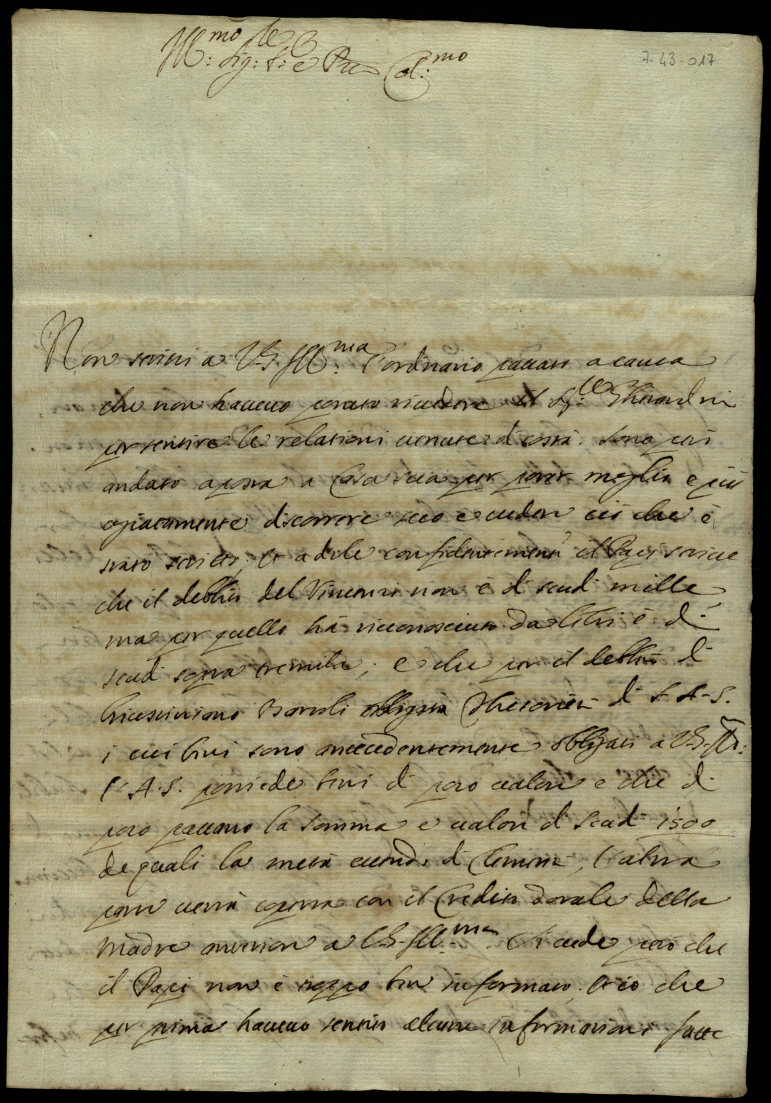 Ill.mo Sig.r e P.ron Col.mo
7-43-017
Non scrissi a V.S. Ill.ma l'ordinario passato a causa
che non havevo potuto vedere il Sig.re Gherardini
per sentire le relationi venute di costà. Sono poi
andato a posta a Casa sua per poter meglio e più
agiatamente discorrere seco e veder ciò che è
stato scritto. Et a dirle confidentemente il Papi scrive
che il debito del Vincenzi non è di scudi mille,
ma per quello ha riconosciuto da libri è di
scudi sopra tremila; e che per il debito di
Bartoli obligato di S.A.S.
i cui beni sono antecedentemente obligati a V.S. Ill.
l'A.S. possiede beni di poco valore e che di
poco passano la somma e valore di scudi 1500
de quali la metà essendo di, l'altra
parte verrà coperta con il Credito dotale della
Madre anteriore a V.S. Ill.ma. Si vede però che
il Papi non è troppo ben informato, et io che
per prima havevo sentito alcune informationi fatte